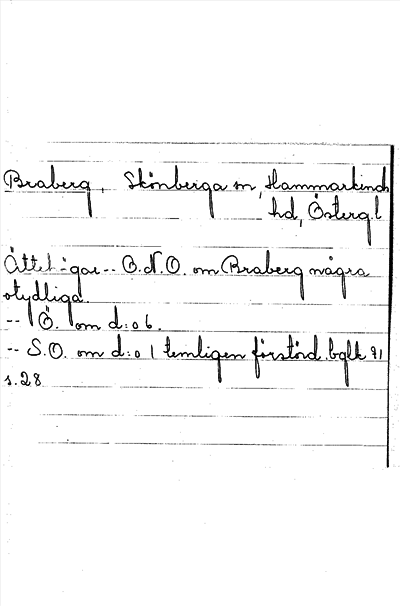 Braberg, Skönberga sn, Hammarkinds
hd, Österg.l
Ättehögar -- O.N.O. om Braberg några
otydliga.
-- Ö. om d:o 6.
-- S.O. om d:o 1 temligen förstörd. bglk 71
s. 28